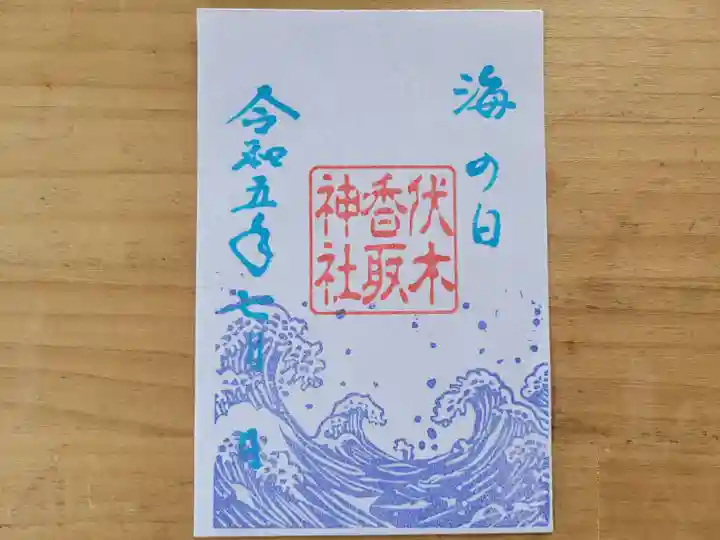 海の日
伏木
香取
神社
令和五年七月 日